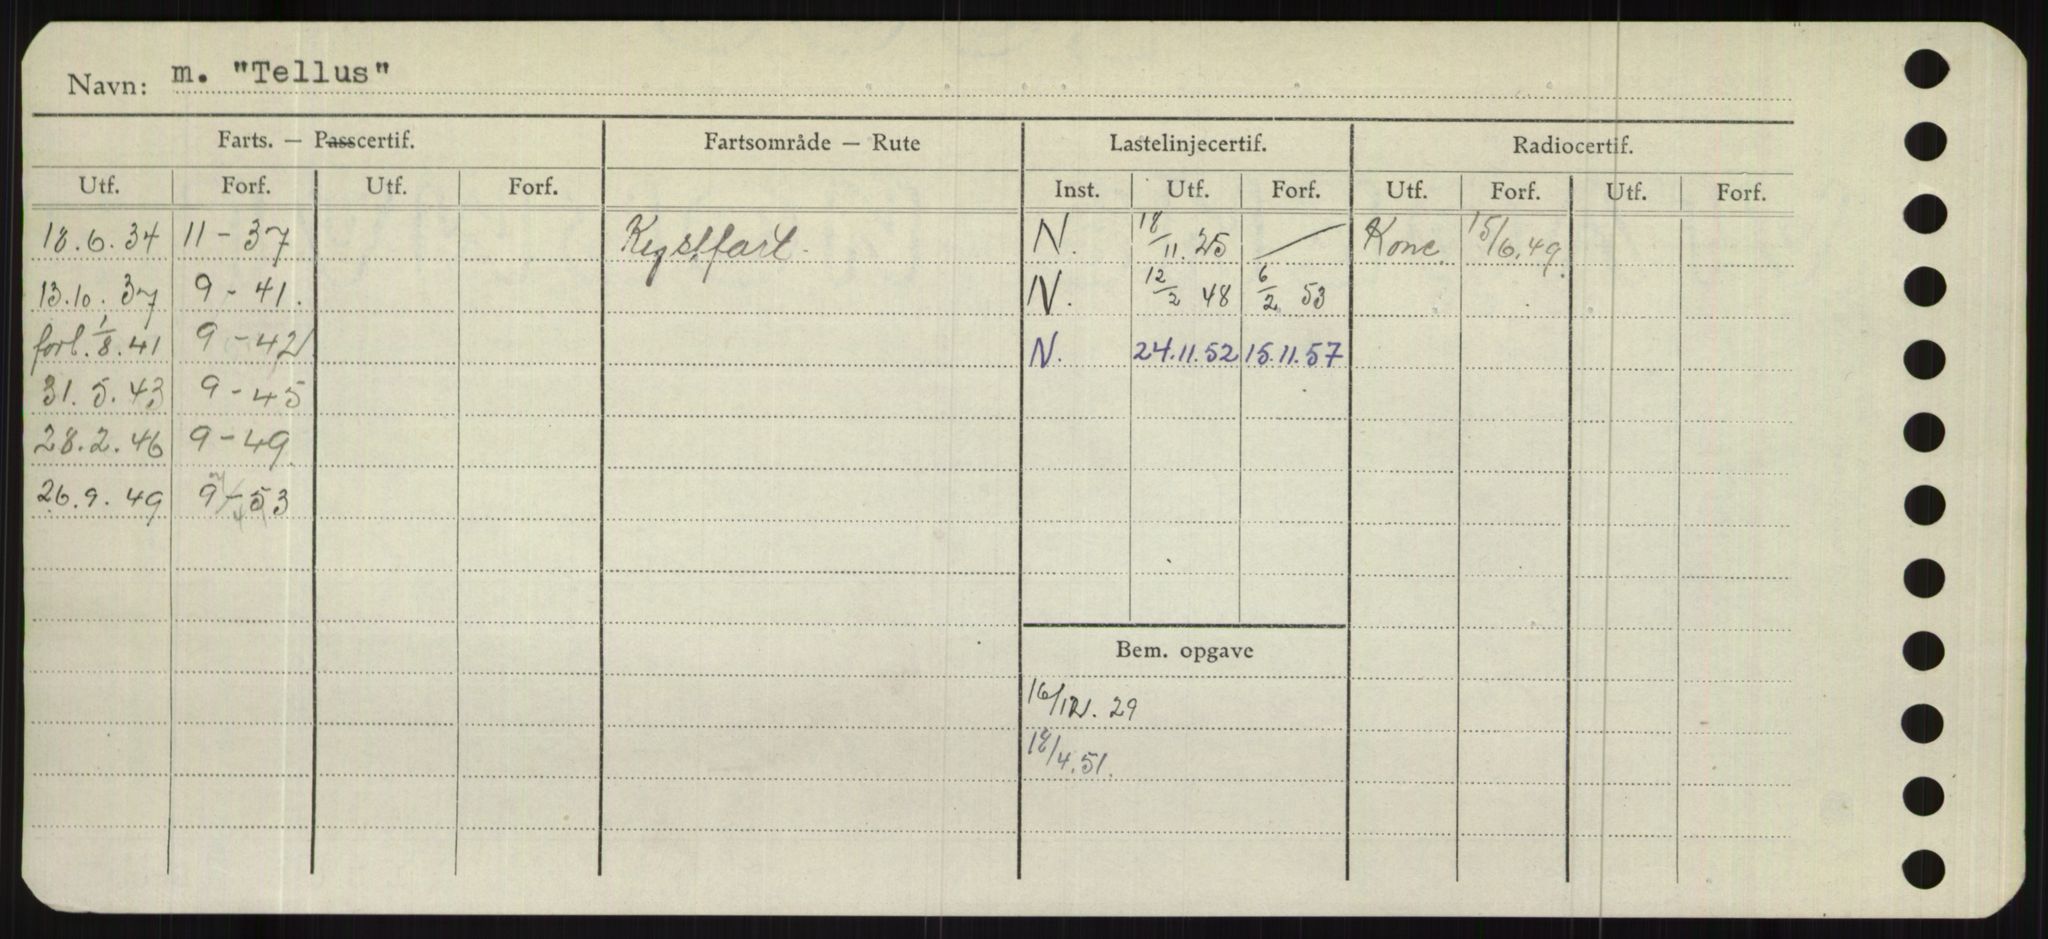 Navn: m. "Tellus"
Farts. — Passcertif. Fartsområde — Rute Lastelinjecertif. Radiocertif.
Utf. Forf. Utf. Forf. Inst. Utf. Forf. Utf. Forf. Utf. Forf.
18.6.34 11-37 Kystfart. N. 18/11.25 Konc. 15/6.49.
13.10.37 9-41. N. 12/2 48 6/2 53
forl. 1/8.41 9-42 N. 24.11.52 15.11.57
31.5.43 9-45
28.2.46 9-49
26.9.49 9-53
Bem. opgave
16/12.29
18/4.51.